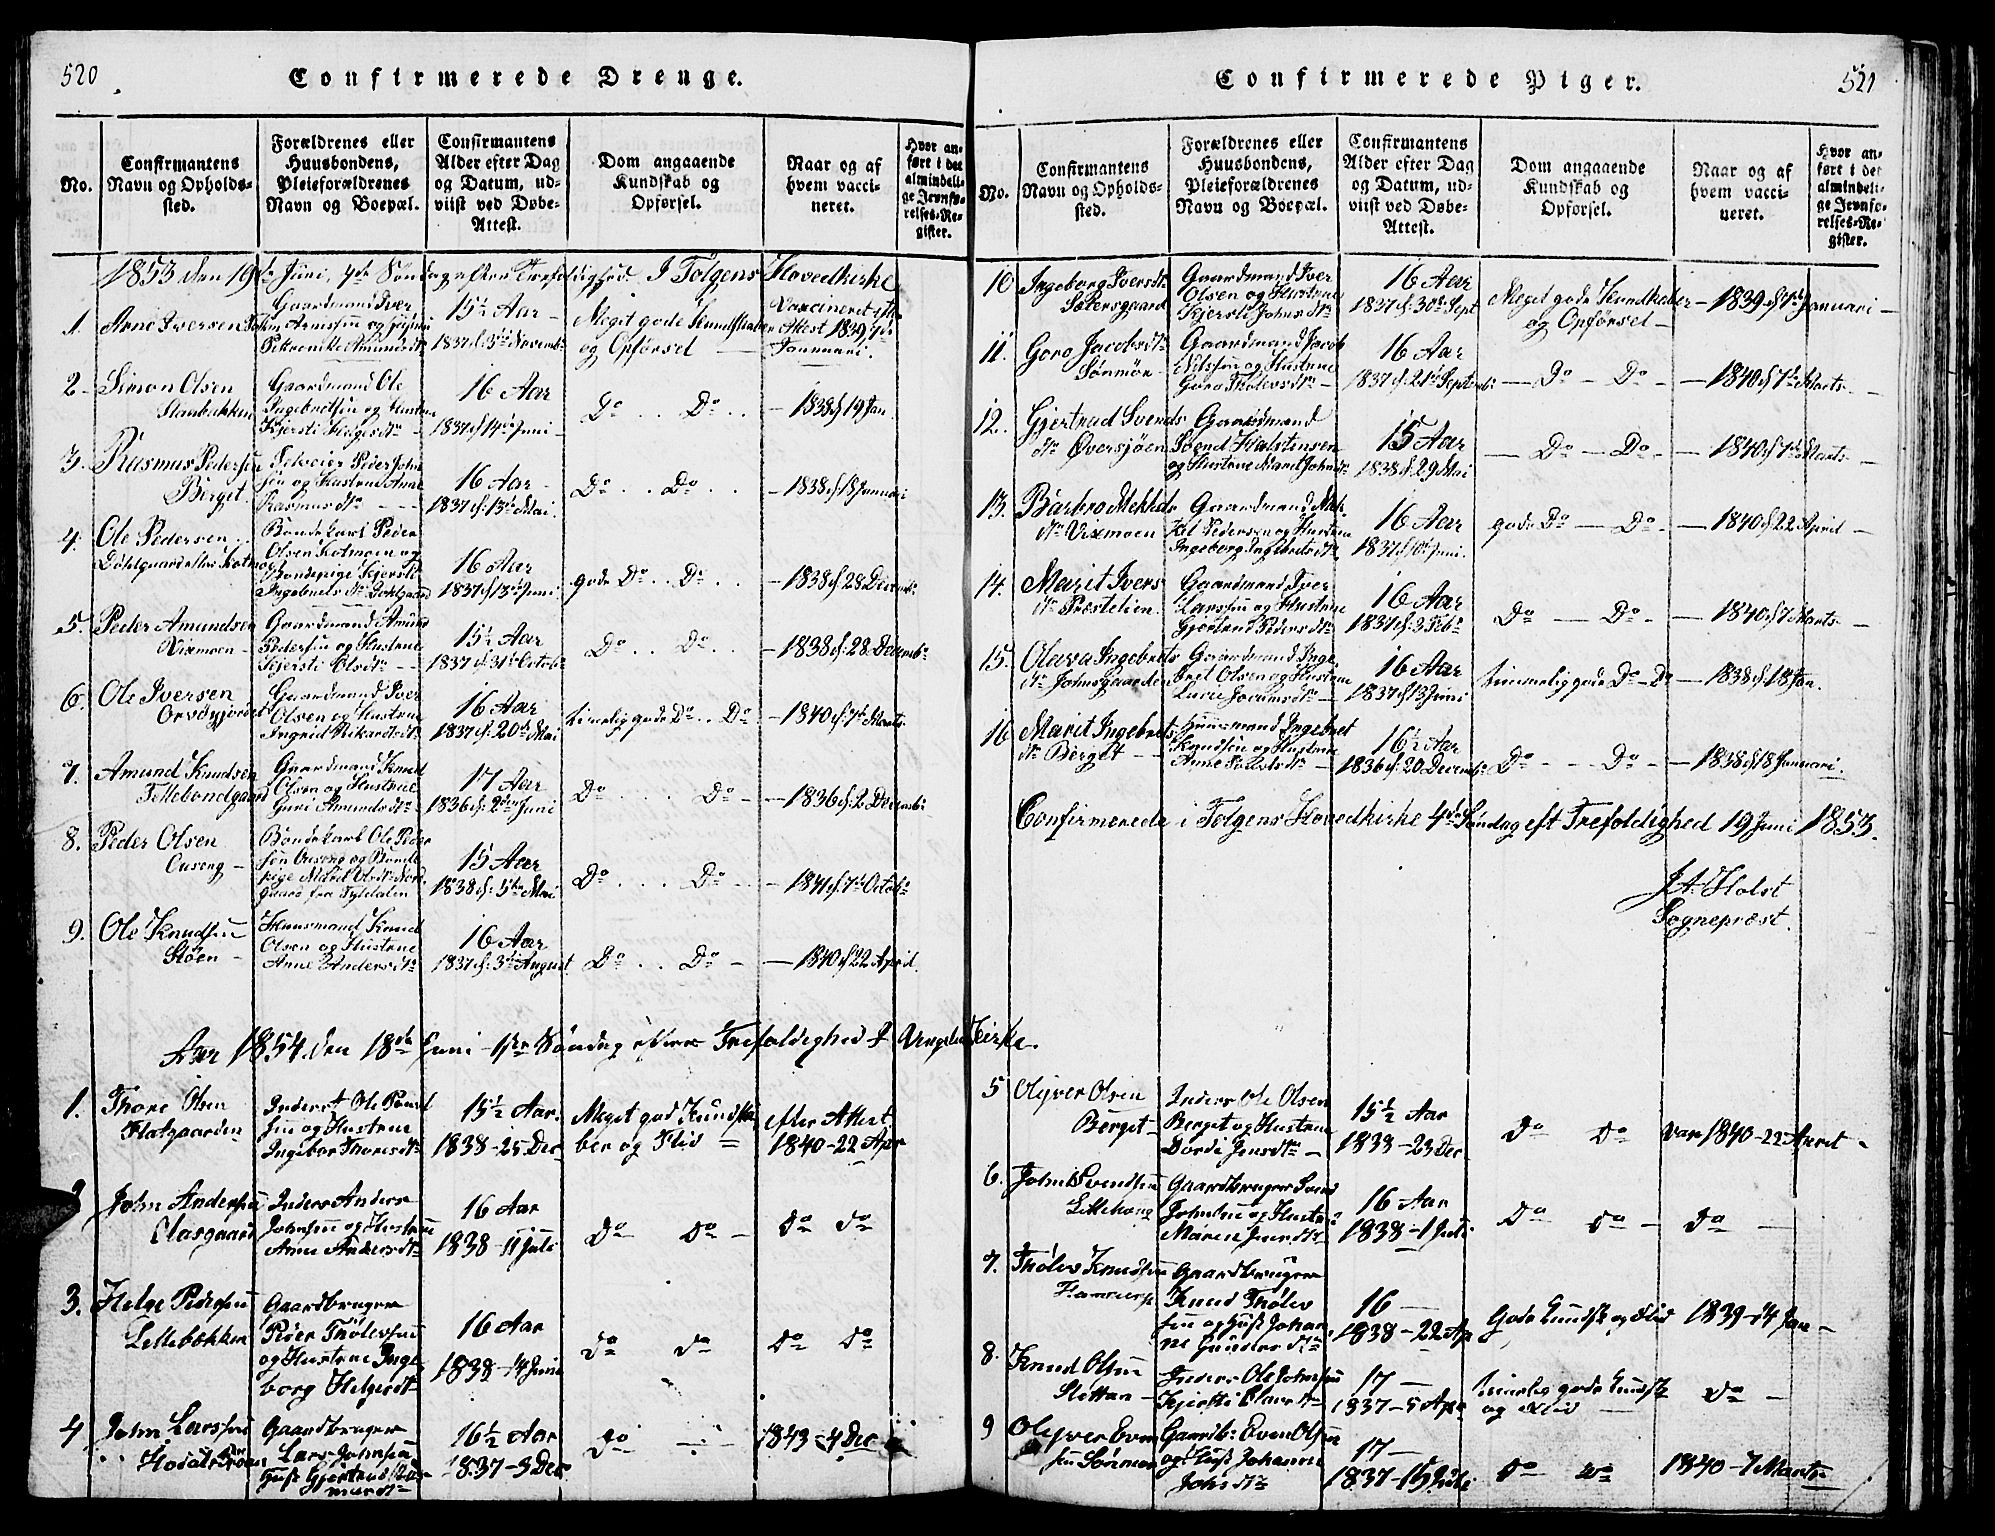 520
Confirmerede Drenge.
No.
Confirmantens Navn og Opholds-sted.
Forældrenes eller Huusbondens, Pleieforældrenes Navn og Boepæl.
Confirmantens Alder efter Dag og Datum, ud-viist ved Døbe-Attest.
Dom angaaende Kundskab og Opførsel.
Naar og af hvem vacci-neret.
Hvor an-ført i det almindeli-ge Jevnfø-relses-Re-gister.
1853 den 19de Juni, 4de Søndag efter Trefoldighed I Tolgens Hovedkirke
1. Arne Iversen
Gaardmand Iver
15½ Aar
1837 d: 3die Novembr
Meget gode Kundskaber
og Opførsel
Vaccineret eftr
Attest 1839 7de
Januari.
2. Simon Olsen
Gaardmand Ole
Ingebretsen og Hustrue
Kjersti Helgesdtr
16 Aar
1837 d 14de Juni
Do . . Do . .
1838 d 19 Jan
3. Rasmus Pedersen
Berget
Peder John
sen og Hustrue Anne
Rasmusdtr
16 Aar
1837 d: 13de Mai.
Do . . Do . .
1838 d 18 Januari
4. Ole Pedersen
Bondekarl Peder
Olsen Kotmoen og
Bondepige Kjersti
Ingebretsdtr
16 Aar
1837 d 13de Juni
gode Do . . Do . .
1838 d 28 Decembr
5. Peder Amundsen
Vixmoen
Gaardmand Amund
Pedersen og Hustrue
Kjersti Olsdtr
15½ Aar
1837 d: 31te Octobr
Do . . Do . .
1838 d: 28 Decembr
6. Ole Iversen
Gaardmand Iver
Olsen og Hustrue
Ingrid
16 Aar
1837 d: 20de Mai
timelig gode Do . . Do
1840 d: 7de Marts
7. Amund Knudsen
Gaardmand Knud
Olsen og Hustrue
Guri Amundsdtr
17 Aar
1836 d: 2den Juni
Do . . . Do
1836 d: 2 Decembr
8. Peder Olsen
Ouseng
Bondekarl Ole Peder
sen Ouseng og Bonde
pige Marit Olsdtr Nord
gaard fra Tyldalen
15 Aar
1838 d: 5te Mai
Do . . . Do
1841 d: 7de Octobr
9. Ole Knudsen
Huusmand Knud
Olsen og Hustrue
Anne Andersdtr
16 Aar
1837 d: 3die August
Do . . Do
1840 d 22 April
Aar 1854 den 18de Juni 1ste Søndag efter Trefoldighed I Vingelen Kirke.
1. Thore Olsen
Flatgaarden
Inderst Ole
sen og Hustrue
Ingebor Thoresdtr
15½ Aar
1838 - 25 Dec
Meget god Kundska
ber og Flid
efter Attest
1840 - 22 Apr
2 John Andersen
Claasgaard
Inders Anders
Johnsen og Hustrue
Anne Andersdtr
16 Aar
1838 - 11 Juli
Do Do
Do Do
3. Helge Pedersen
Lillebækken
Gaardbruger
Peder Thølevsen
og Hustrue Inge
borg Helgesdtr
16 Aar
1838 - 14 Juni
Do Do
Do Do
4 John Larssen
Gaardbruger
Lars Johnsen
Hust Gjertrud
16½ Aar
1837 - 3 Dec
Do
1843 - 4 Dec
Confirmerede Piger.
521
No.
Confirmantens Navn og Opholds-sted.
Forældrenes eller Huusbondens, Pleieforældrenes Navn og Boepæl.
Confirmantens Alder efter Dag og Datum, ud-viist ved Døbe-Attest.
Dom angaaende Kundskab og Opførsel.
Naar og af hvem vacci-neret.
Hvor an-ført i det almindeli-ge Jevnfø-relses-Re-gister.
10 Ingeborg Iversdtr
Sætersgaard
Gaardmand Iver
Olsen og Hustrue
Kjersti Johnsdtr
16 Aar
1837 d: 30te Sept
Meget gode Kundskaber
og Opførsel
1839 d 7de Januari
11. Goro Jacobsdtr
Sønmør
Gaardmand Jacob
Nilssen og Hustrue
Goro Thølevsdtr
16 Aar
1837 d: 21de Septembr
Do Do
1840 d 7de Marts
12. Gjertrud Svends
dtr Øversjøen
Gaardmand
Svend Halstensen
og Hustrue Marit Johnsdtr
15 Aar
1838 d: 29 Mai
Do Do
1840 d 7de Marts
13. Barbro Mekkels
dtr Vixmoen
Gaardmand Mek
kel Pedersen og Hustrue
Ingeborg Ingebretsdtr
16 Aar
1837 Juni
gode Do Do
1840 d 22 April
14. Marit Ivers
dtr Præstelien
Gaardmand Iver
Larssen og Hustrue
Gjertrud Pedersdtr
16 Aar
1837 d: 3 Febr
Do Do
1840 d 7 Marts
15. Olava Ingebrets
dtr Johnsgaarden
Gaardmand Inge
bret Olsen og Hustrue
16 Aar
1837 d 13 Juni
timmelig gode Do Do
1838 d 18 Jan.
16 Marit Ingebrets
dtr Berget
Huusmand Ingebret
Knudsen og Hustrue
Anne
16½ Aar
1836 d: 20 Decembr
Do Do
1838 d 18 Januari.
Confirmerede i Tolgens Hovedkirke 4de Søndag eft Trefoldighed 19 Juni 1853.
J. A. Holst
Sognepræst.
5 Olyver Olsen
Berget
Inders Ole Olsen
Berget og Hustrue
Dordi Jensdtr
15½ Aar
1838 - 23 Dec
Do Do
Vac. 1840 - 22 April
6. John Svendsen
Gaardbruger Svend
Johnsen og Hustrue
Maren
16 Aar
1838 - 1 Juli
Do Do
Do
7. Thølev Knudsen
Gaardbruger
Knud Thølev
sen og Hust Johan
ne Gundersdtr
16
1838 - 22 Ap
Gode Kundsk og Flid
1839 - 14 Jan
8. Knud Olsen
Sletten
Inders Ole Johnsen
Kjersti
17
1837 - 5 Apr
timelig gode Kundsk
og Flid
Do
9 Olyver Even
sen Sønmør
Gaardb: Even Olsen
og Hust Johanne
Johsdtr
17
1837 - 15 Juli
Do Do
1840 - 7 Marts